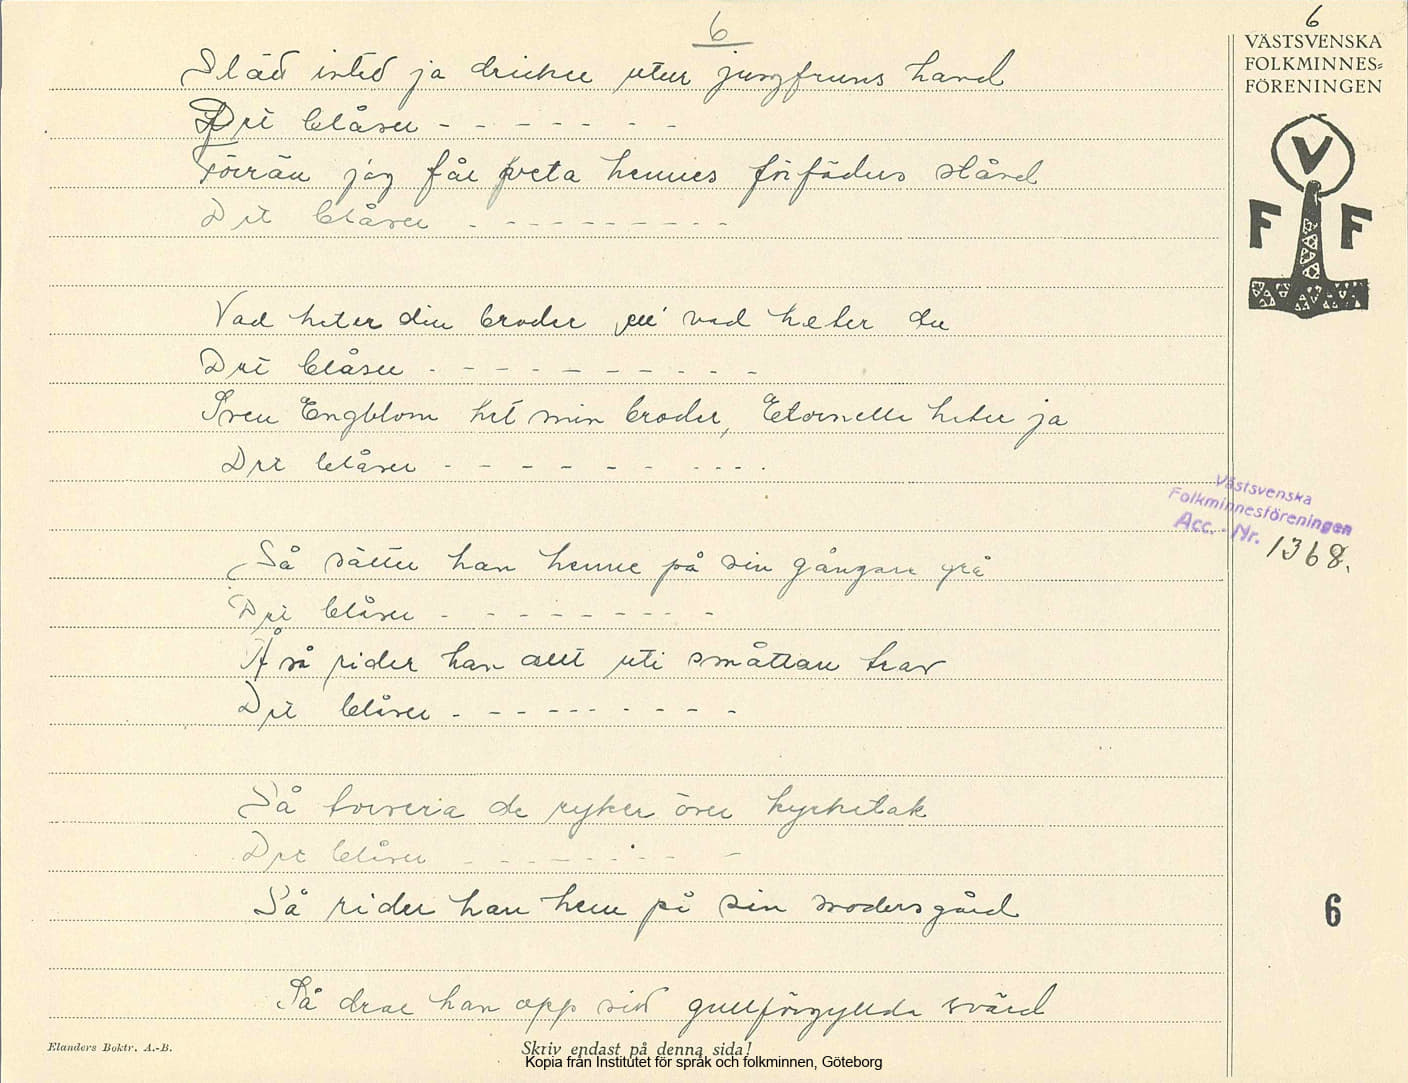 6
6
VÄSTSVENSKA
FOLKMINNES-
FÖRENINGEN
V
F F
ja dricker utur jungfruns hand
Det blåser - - - - - - -
Förrän jag får veta hennes förfäders stånd
Det blåser - - - - - - - - - -
Vad heter din broder vad heter du
Det blåser - - - - - - - - - -
Sven Engblom het min broder, heter ja
Det blåser - - - - - - - - - -
Västsvenska
Folkminnesföreningen
Acc. - Nr. 1368.
Så sätter han henne på sin gångare grå
Det blåser - - - - - - - - -
Å så rider han allt uti småttan trav
Det blåser - - - - - - - - - -
Så de ryker över kyrketak
Det blåser - - - - - - - -
Så rider han hem på sin modersgård
6
Så drar han opp sitt gullförgyllda svärd
Elanders Boktr. A.-B.
Skriv endast på denna sida!
Kopia från Institutet för språk och folkminnen, Göteborg